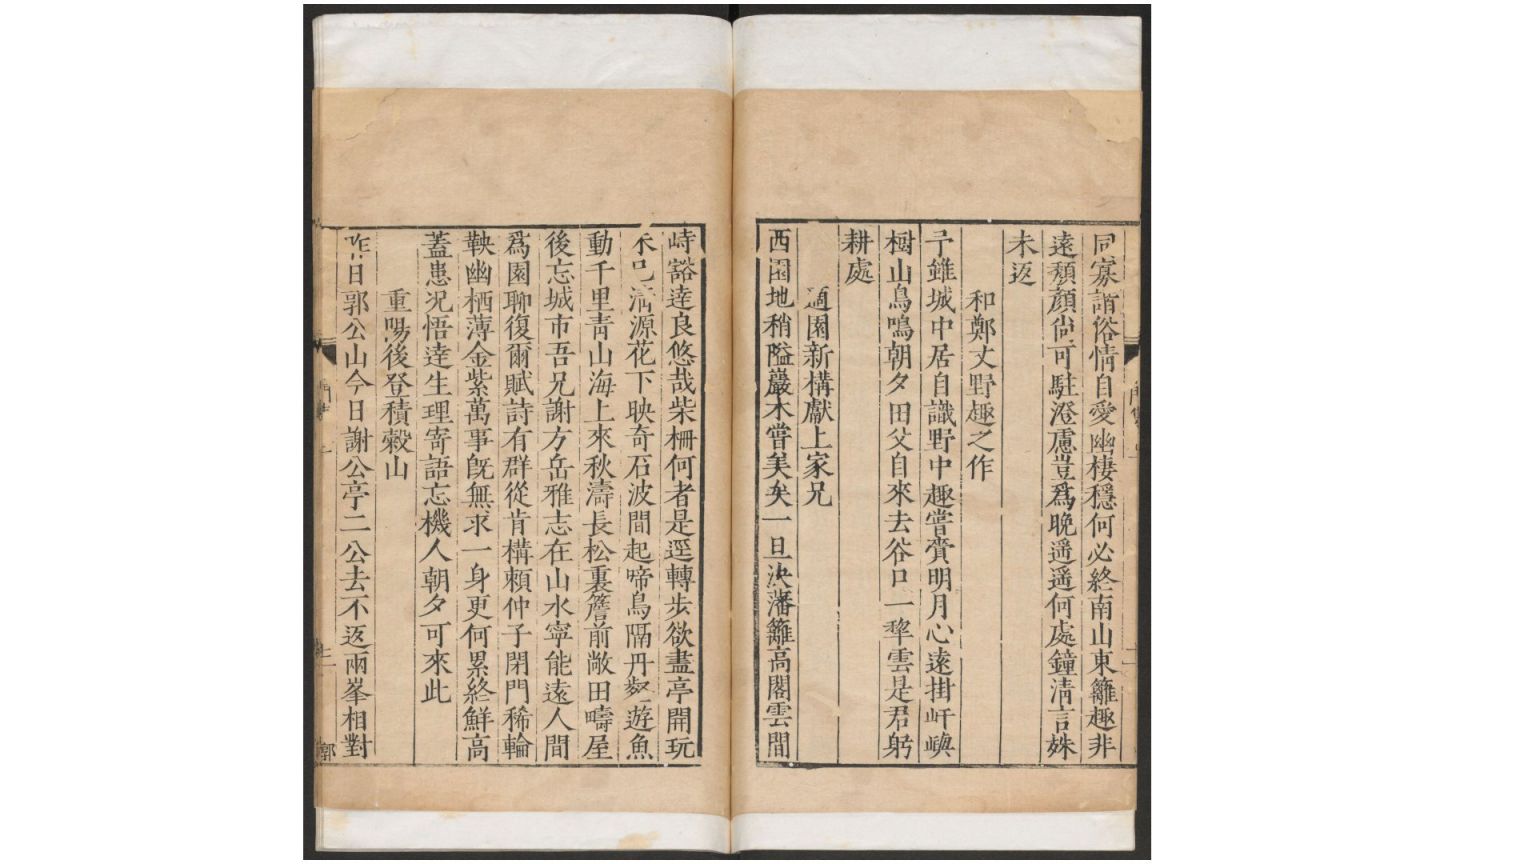 同寡諧俗情自愛幽棲穩何必終南山東籬趣非
遠頽顔尙可駐澄慮豈爲晚遥遥何處鐘淸言姝
未返
和鄭丈野趣之作
予雖城中居自識野中趣嘗賫明月心遠掛㟁嶼
樹山鳥鳴朝夕田父自來去谷口一犂雲是君躬
耕處
適園新構獻上家兄
西園地稍隘巖木嘗美矣一旦決藩籬高閣雲間
峙豁達良悠哉柴柵何者是逕轉步欲盡亭開玩
未已淸源花下映奇石波間起啼鳥隔丹壑遊魚
動千里靑山海上來秋濤長松裏簷前敞田疇屋
後忘城市吾兄謝方岳雅志在山水寧能遠人間
爲園聊復爾賦詩有群從肯構頼仲子閉門稀輪
鞅幽栖薄金紫萬事旣無求一身更何累終鮮高
蓋患况悟達生理寄語忘機人朝夕可來此
重陽後登積穀山
昨日郭公山今日謝公亭二公去不返兩峯相對
郭